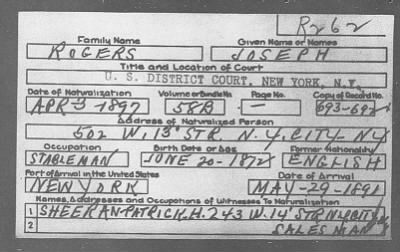 R262
Family Name Given Name or Names
ROGERS JOSEPH
Title and Location of Court
U. S. DISTRICT COURT, NEW YORK, N.Y.
Date of Naturalization Volume or Bundle No. Page No. Copy of Record No.
APR-3-1897 58B — 693-692
Address of Naturalized Person
502 W. 13" STR. N.Y. CITY-NY
Occupation Birth Date or Age Former Nationality
STABLEMAN JUNE 20-1872 ENGLISH
Port of Arrival in the United States Date of Arrival
NEW YORK MAY-29-1891
Names, Addresses and Occupations of Witnesses To Naturalization
1 SHEERAN-PATRICK.H.243 W.14" STR NY CITY
2 SALESMAN